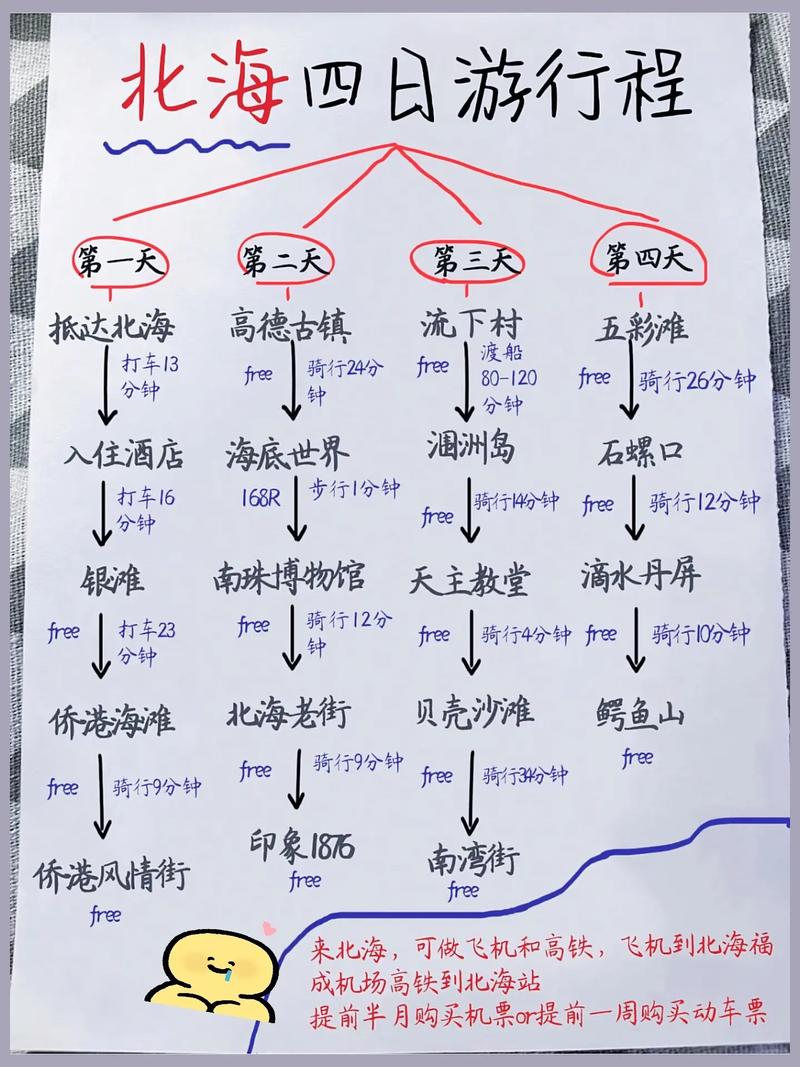 北海四日游行程
第一天
抵达北海
打车13
分钟
入住酒店
打车16
分钟
银滩
free
打车23
分钟
侨港海滩
free
骑行9分钟
侨港风情街
free
第二天
高德古镇
free
骑行24分
钟
海底世界
168R
步行1分钟
南珠博物馆
free
骑行12分
钟
北海老街
free
骑行9分钟
印象1876
free
第三天
流下村
free
渡船
80-120
分钟
涠洲岛
free
骑行14分钟
天主教堂
free
骑行4分钟
贝壳沙滩
free
骑行34分钟
南湾街
free
第四天
五彩滩
free
骑行26分钟
石螺口
free
骑行12分钟
滴水丹屏
free
骑行10分钟
鳄鱼山
free
来北海，可做飞机和高铁，飞机到北海福
成机场高铁到北海站
提前半月购买机票or提前一周购买动车票